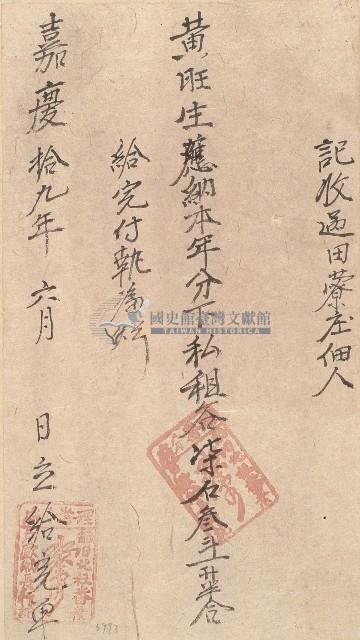 記收過田藔庄佃人
黄旺生應納本年分下私租谷柒石叁斗二升半合
給完付執為炤
嘉慶拾九年六月 日立給完单
國史館臺灣文獻館
TAIWAN HISTORICA
6993